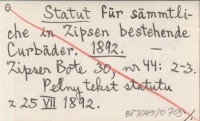 Statut für sämmtli-
che in Zipsen bestehende
Curbäder. 1892. —
Zipser Bote 30, nr 44: 2-3.
Pełny tekst statutu
z 25 VII 1892.